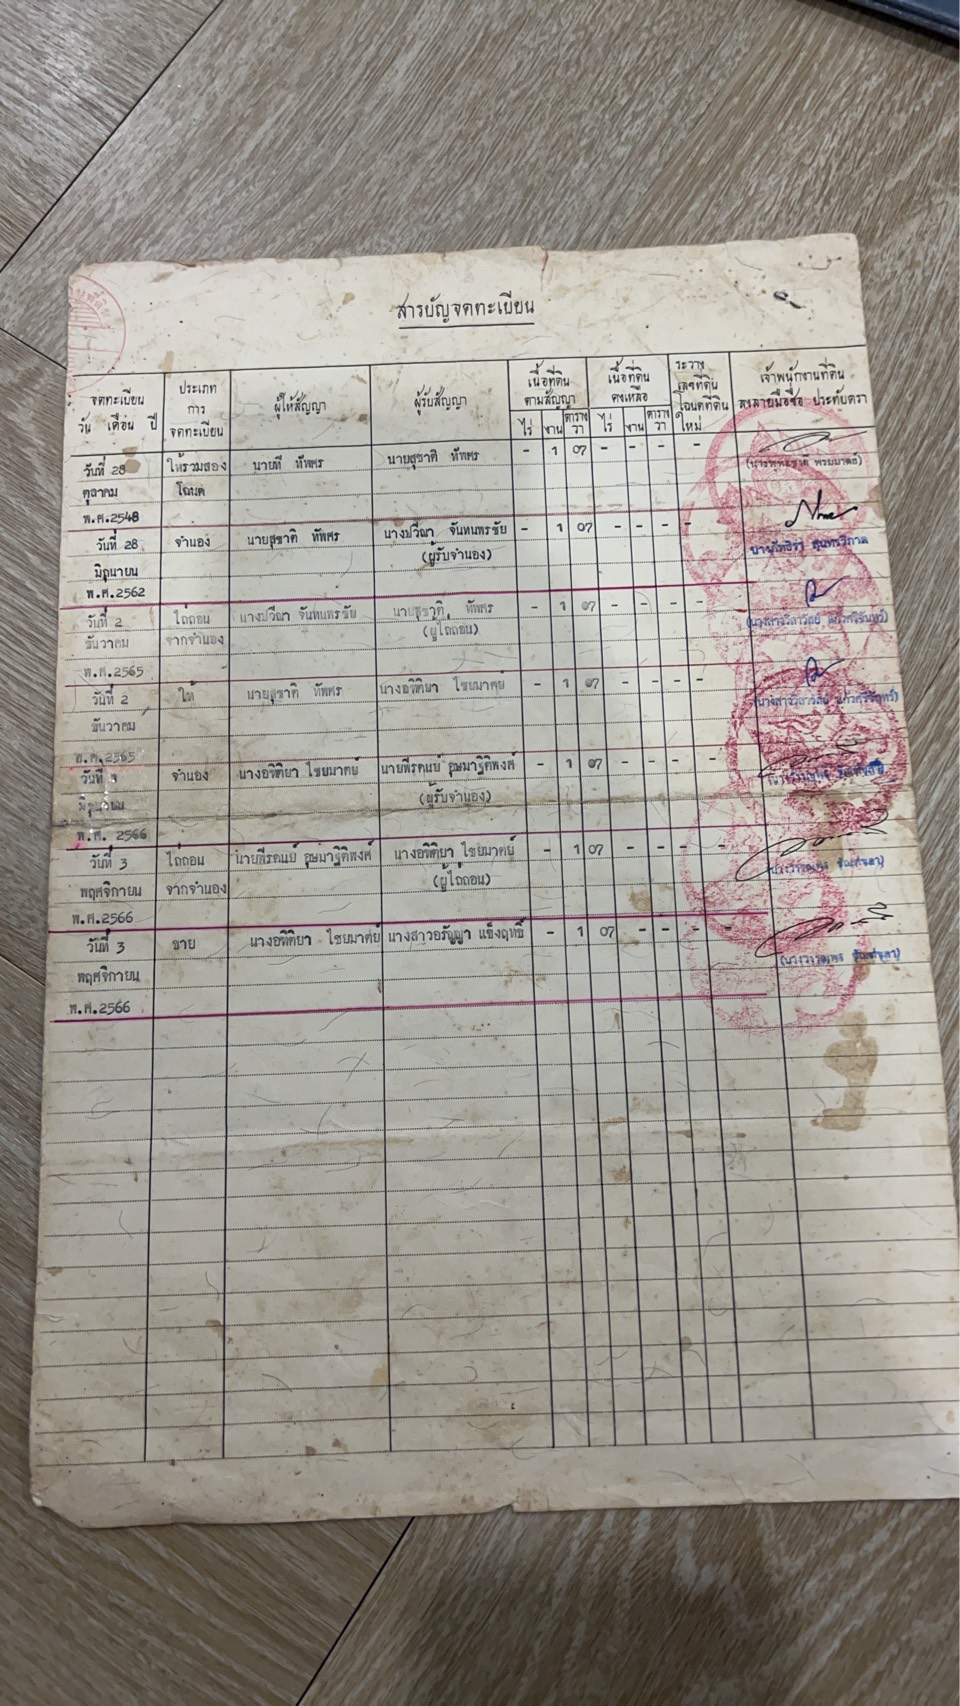 สารบัญจดทะเบียน
จดทะเบียน
วัน เดือน ปี
ประเภท
การ
จดทะเบียน
ผู้ให้สัญญา
ผู้รับสัญญา
เนื้อที่ดิน
ตามสัญญา
ไร่ งาน ตารางวา
เนื้อที่ดิน
คงเหลือ
ไร่ งาน ตารางวา
ระวาง
เลขที่ดิน
โฉนดที่ดิน
ใหม่
เจ้าพนักงานที่ดิน
ลงลายมือชื่อ ประทับตรา
วันที่ 28 ให้รวมสอง นายที ทัพศร นายสุชาติ ทัพศร - 1 07 - - - -
ตุลาคม โฉนด
พ.ศ.2548
วันที่ 28 จำนอง นายสุชาติ ทัพศร นางปวีณา จันทนพรชัย - 1 07 - - - -
มิถุนายน (ผู้รับจำนอง)
พ.ศ.2562
วันที่ 2 ไถ่ถอน นางปวีณา จันทนพรชัย นายสุชาติ ทัพศร - 1 07 - - - -
ธันวาคม จากจำนอง (ผู้ไถ่ถอน)
พ.ศ.2565
วันที่ 2 ให้ นายสุชาติ ทัพศร นางอทิติยา ไชยมาตย์ - 1 07 - - - -
ธันวาคม
พ.ศ.2565
วันที่ จำนอง นางอทิติยา ไชยมาตย์ นายพีรดนย์ อุษมาฐิติพงศ์ - 1 07 - - - - -
มิถุนายน (ผู้รับจำนอง)
พ.ศ. 2566
วันที่ 3 ไถ่ถอน นายพีรดนย์ อุษมาฐิติพงศ์ นางอทิติยา ไชยมาตย์ - 1 07 - - - - -
พฤศจิกายน จากจำนอง (ผู้ไถ่ถอน)
พ.ศ.2566
วันที่ 3 ขาย นางอทิติยา ไชยมาตย์ นางสาวอรัญญา แข็งฤทธิ์ - 1 07 - - - - -
พฤศจิกายน
พ.ศ.2566